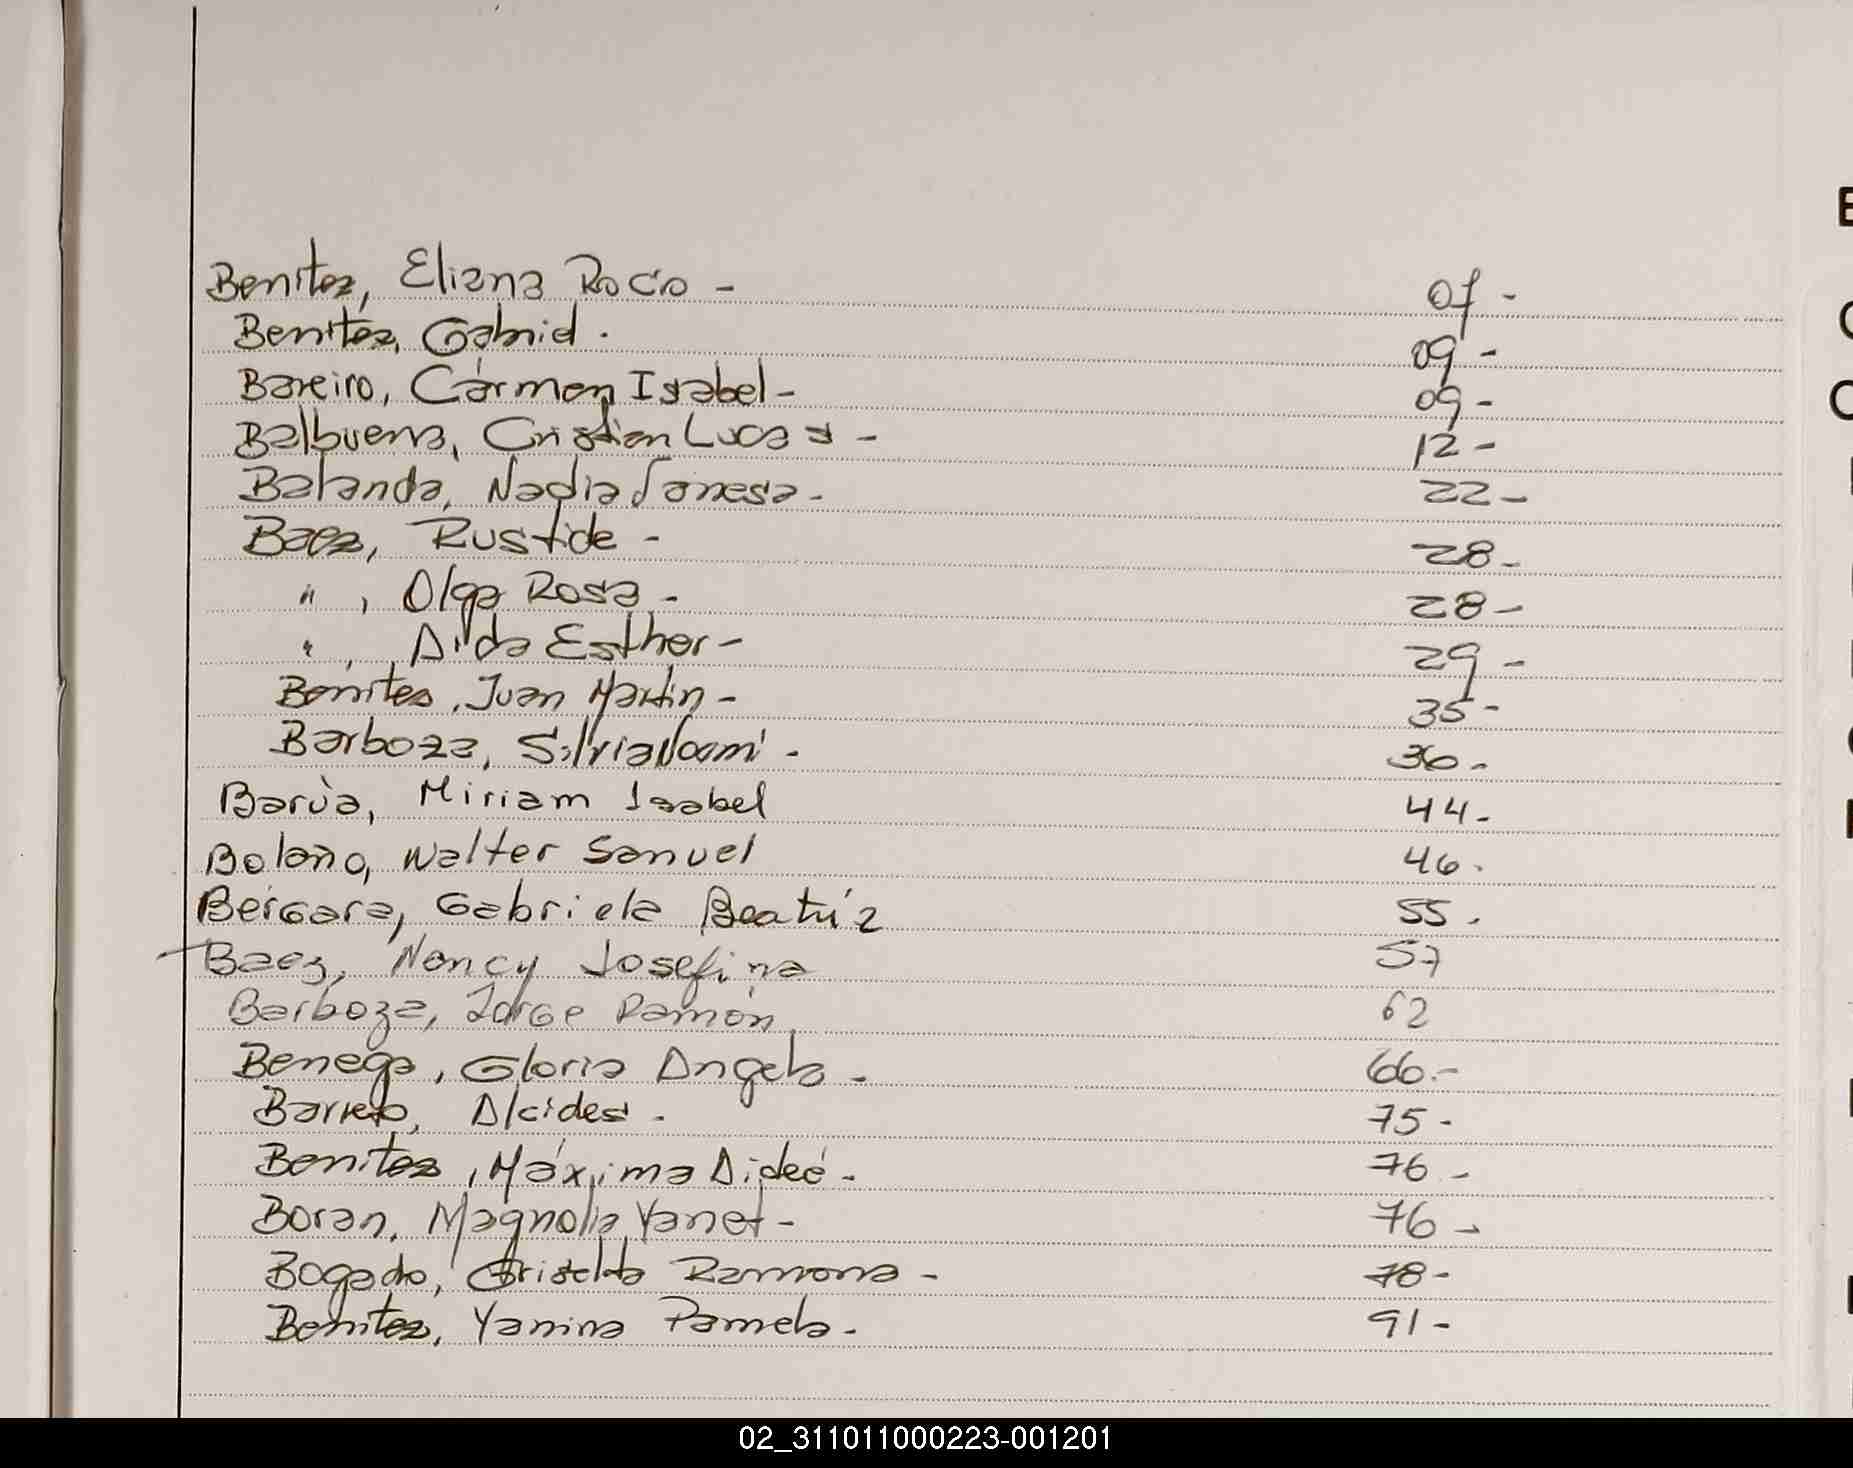 Benitez, Eliana Rocio - 07 -
Benitez, Gabriel. 09 -
Bareiro, Carmen Isabel - 09 -
Balbuena, Cristian Lucas - 12 -
Balanda, Nadia Vanesa. 22 -
Baez, Rustide - 28 -
" , Olga Rosa - 28 -
" , Aida Esther - 29 -
Benitez, Juan Martin - 35 -
Barboza, Silvia Noemi - 36 -
Barúa, Miriam Isabel 44 -
Bolaño, Walter Samuel 46 -
Bergara, Gabriela Beatríz 55 -
Baez, Nancy Josefina 57
Barboza, Jorge Ramón 62
Benega, Gloria Angela - 66.-
Barreto, Alcides - 75 -
Benitez, Máxima Aideé - 76 -
Boran, Magnolia Yanet - 76 -
Bogado, Griselda Ramona - 78 -
Benitez, Yanina Pamela - 91 -
02_311011000223-001201